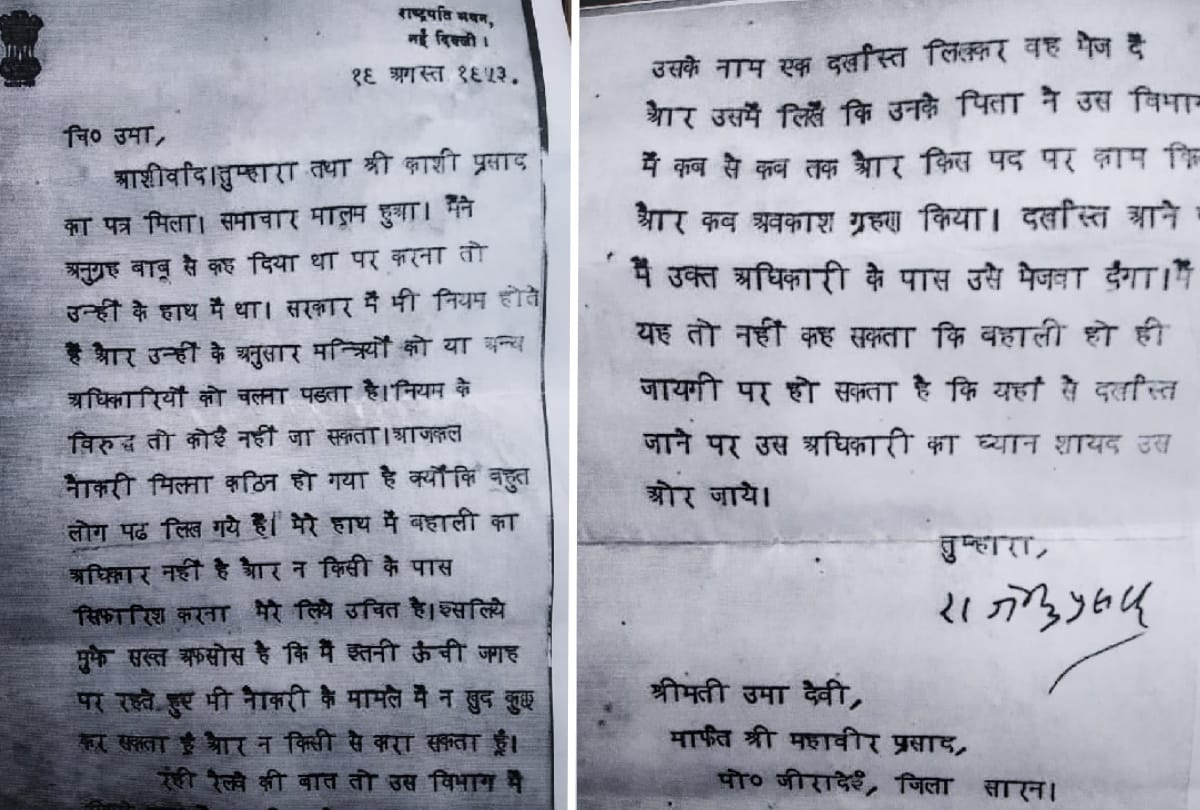 राष्ट्रपति भवन,
नई दिल्ली।
१६ अगस्त १९५३.
चि० उमा,
आशीर्वाद।तुम्हारा तथा श्री काशी प्रसाद
का पत्र मिला। समाचार मालूम हुआ। मैंने
अनुग्रह बाबू से कह दिया था पर करना तो
उन्हीं के हाथ में था। सरकार में भी नियम होते
हैं और उन्हीं के अनुसार मन्त्रियों को या अन्य
अधिकारियों को चलना पडता है।नियम के
विरुद्ध तो कोई नहीं जा सकता।आजकल
नौकरी मिलना कठिन हो गया है क्योंकि बहुत
लोग पढ लिख गये हैं। मेरे हाथ में बहाली का
अधिकार नहीं है और न किसी के पास
सिफारिश करना मेरे लिये उचित है।इसलिये
मुझे सख्त अफसोस है कि मैं इतनी ऊंची जगह
पर रहते हुए भी नौकरी के मामले में न खुद कुछ
कर सकता हूँ और न किसी से करा सकता हूँ।
रही रेलवे की बात तो उस विभाग में
उसके नाम एक दर्खास्त लिखकर वह भेज दें
और उसमें लिखें कि उनके पिता ने उस विभाग
में कब से कब तक और किस पद पर काम
और कब अवकाश ग्रहण किया। दर्खास्त आने
मैं उक्त अधिकारी के पास उसे भेजवा दूंगा।मैं
यह तो नहीं कह सकता कि बहाली हो ही
जायगी पर हो सकता है कि यहां से दर्खास्त
जाने पर उस अधिकारी का ध्यान शायद उस
ओर जाये।
तुम्हारा,
राजेन्द्र प्रसाद
श्रीमती उमा देवी,
मार्फत श्री महावीर प्रसाद,
पो० जीरादेई, जिला सारन।